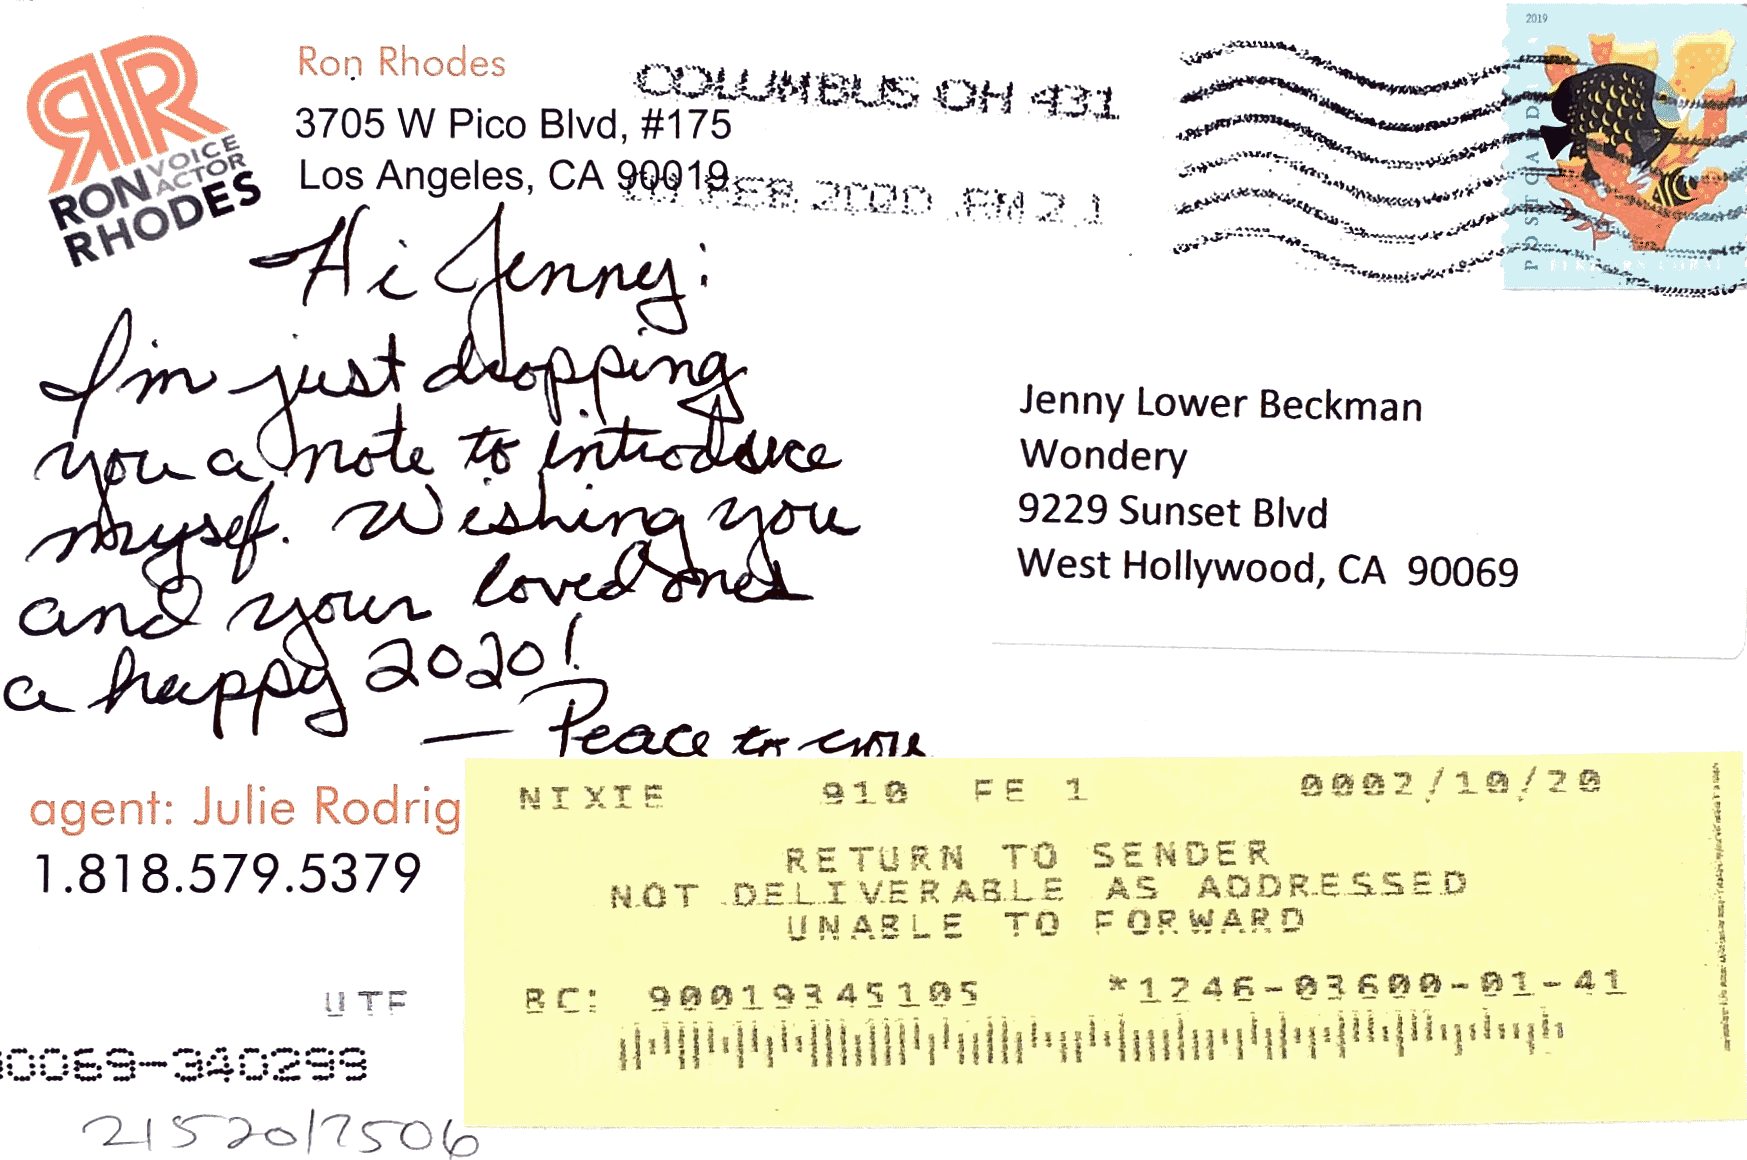 Ron Rhodes
3705 W Pico Blvd, #175
Los Angeles, CA 90019
RR
RON VOICE ACTOR
RHODES
COLUMBUS OH 431
FEB 2020 PM 2 L
2019
POSTCARD
Hi Jenny:
I'm just dropping
you a note to introduce
mysef. Wishing you
and your loved ones
a happy 2020!
— Peace to
Jenny Lower Beckman
Wondery
9229 Sunset Blvd
West Hollywood, CA 90069
agent: Julie Rodrig
1.818.579.5379
NIXIE 910 FE 1 0002/10/20
RETURN TO SENDER
NOT DELIVERABLE AS ADDRESSED
UNABLE TO FORWARD
BC: 90019345105 *1246-03600-01-41
UTF
0069-340299
21520/7506